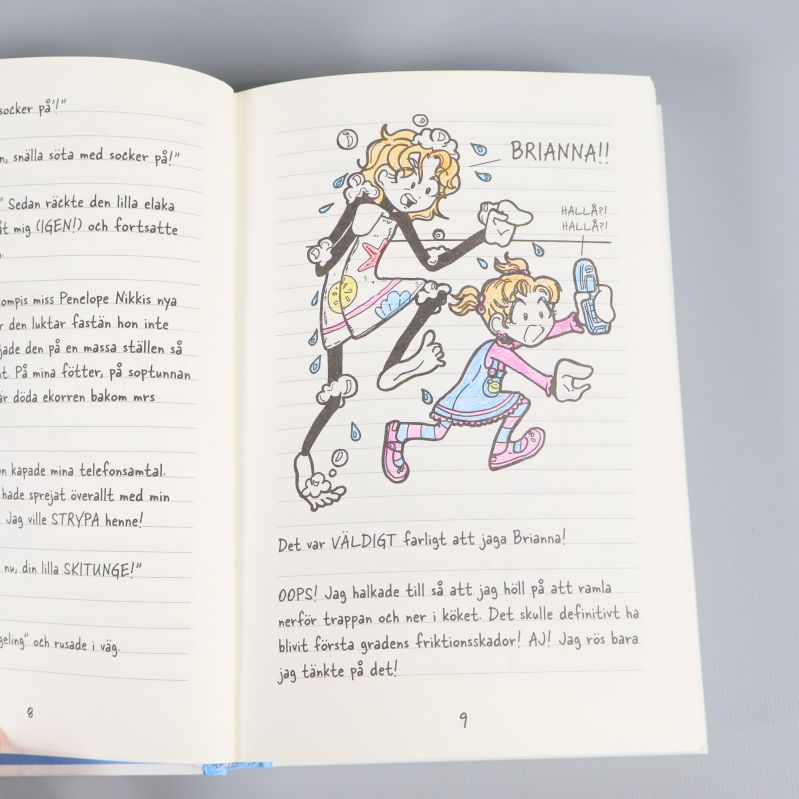 socker på'!"
n, snälla söta med socker på!"
" Sedan räckte den lilla elaka
åt mig (IGEN!) och fortsatte
ompis miss Penelope Nikkis nya
r den luktar fastän hon inte
jade den på en massa ställen så
t På mina fötter, på soptunnan
är döda ekorren bakom mrs
n kapade mina telefonsamtal.
hade sprejat överallt med min
Jag ville STRYPA henne!
nu, din lilla SKITUNGE!"
geling" och rusade i väg.
8
BRIANNA!!
HALLÅ?!
HALLÅ?!
Det var VÄLDIGT farligt att jaga Brianna!
OOPS! Jag halkade till så att jag höll på att ramla
nerför trappan och ner i köket. Det skulle definitivt ha
blivit första gradens friktionsskador! AJ! Jag rös bara
jag tänkte på det!
9